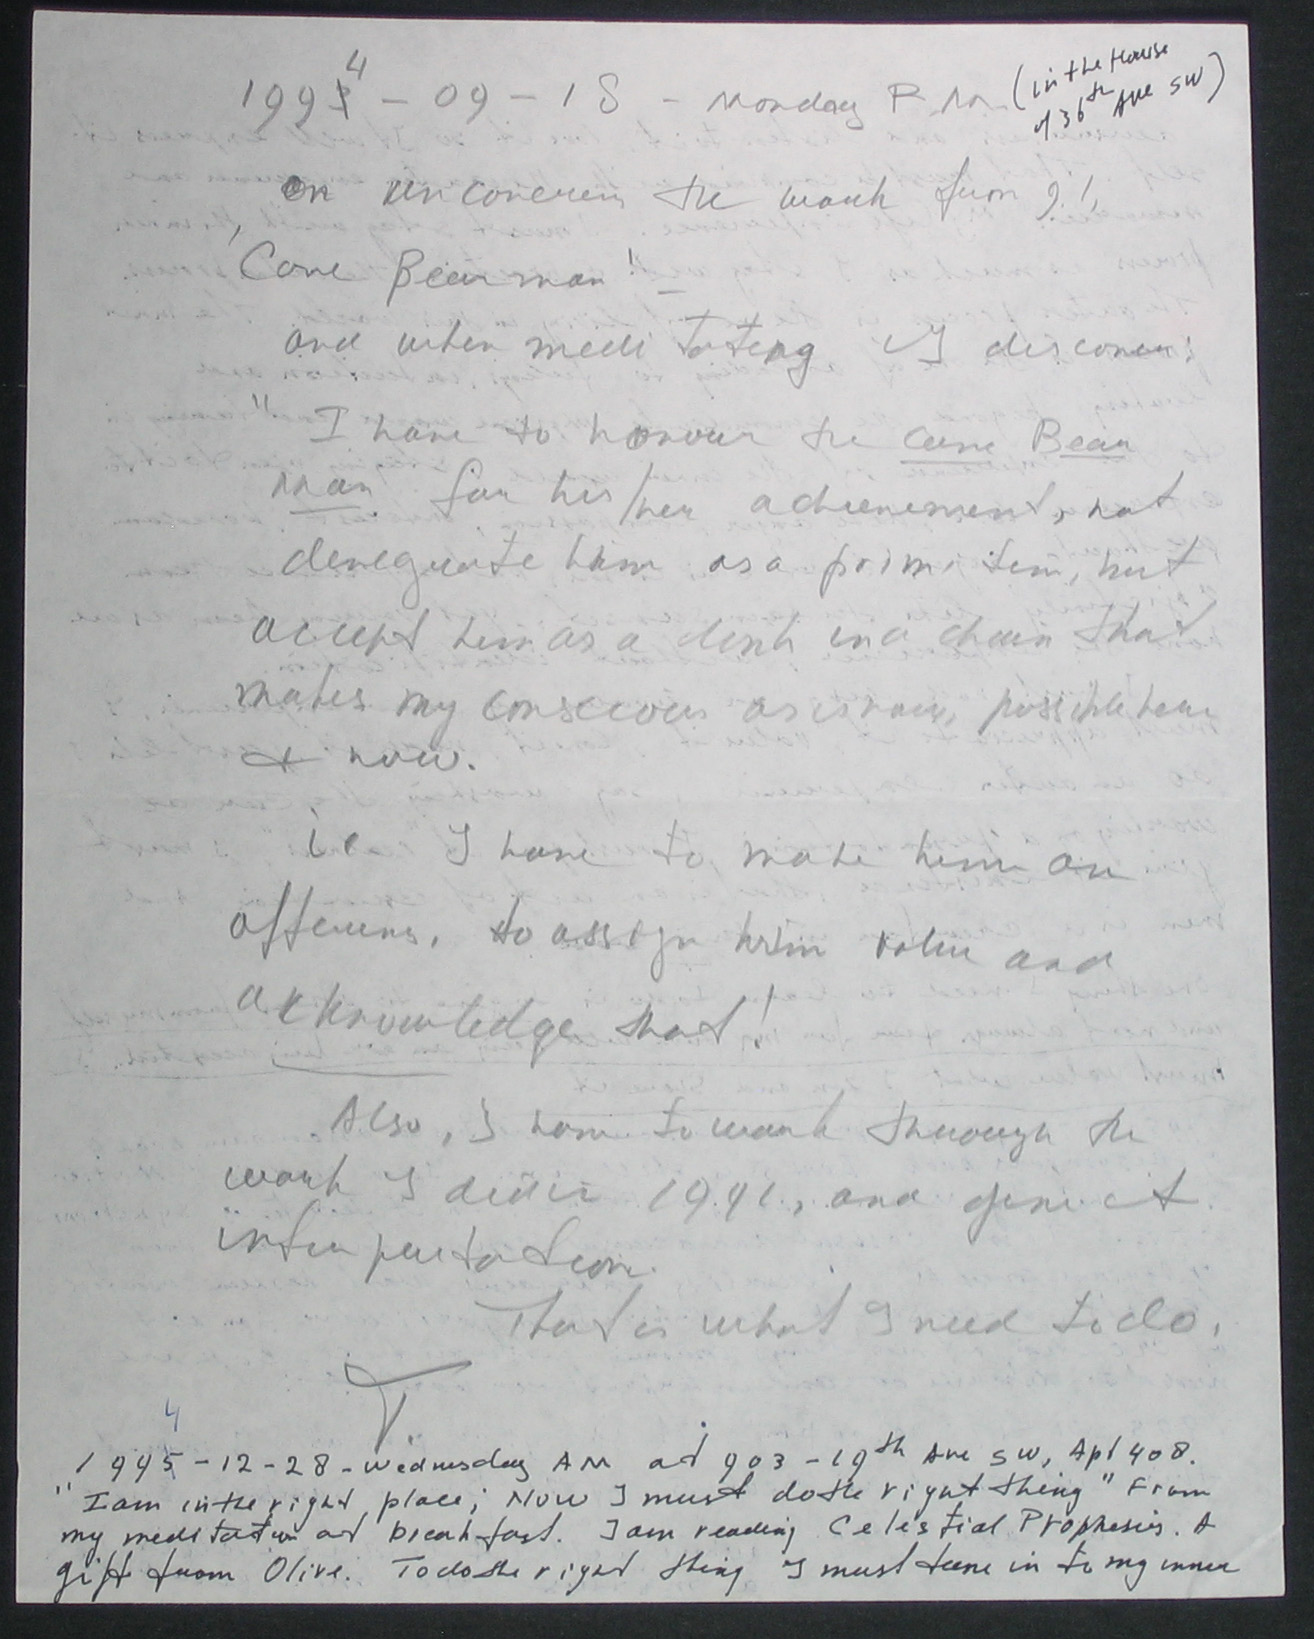 1994 - 09 - 18 - Monday P.M. (in the House
of 36th Ave SW)
on uncovering the work from 91,
'Cave Bearman'! -
and when meditating I discover:
"I have to honour the Cave Bear
Man for his/her achievement, not
denegrate him as a primitive, but
accept him as a link in a chain that
makes my conscious possible here
& now.
ie I have to make him an
offering, to assign him value and
acknowledge that!
Also, I have to work through the
work I did in 1991, and give it
interpretation.
That is what I need to do.
T.
1994 - 12 - 28 - Wednesday AM at 903 - 19th Ave SW, Apt 408.
"I am in the right place; Now I must do the right thing" From
my meditation at breakfast. I am reading Celestial Prophesis. A
gift from Olive. To do the right thing I must tune in to my inner